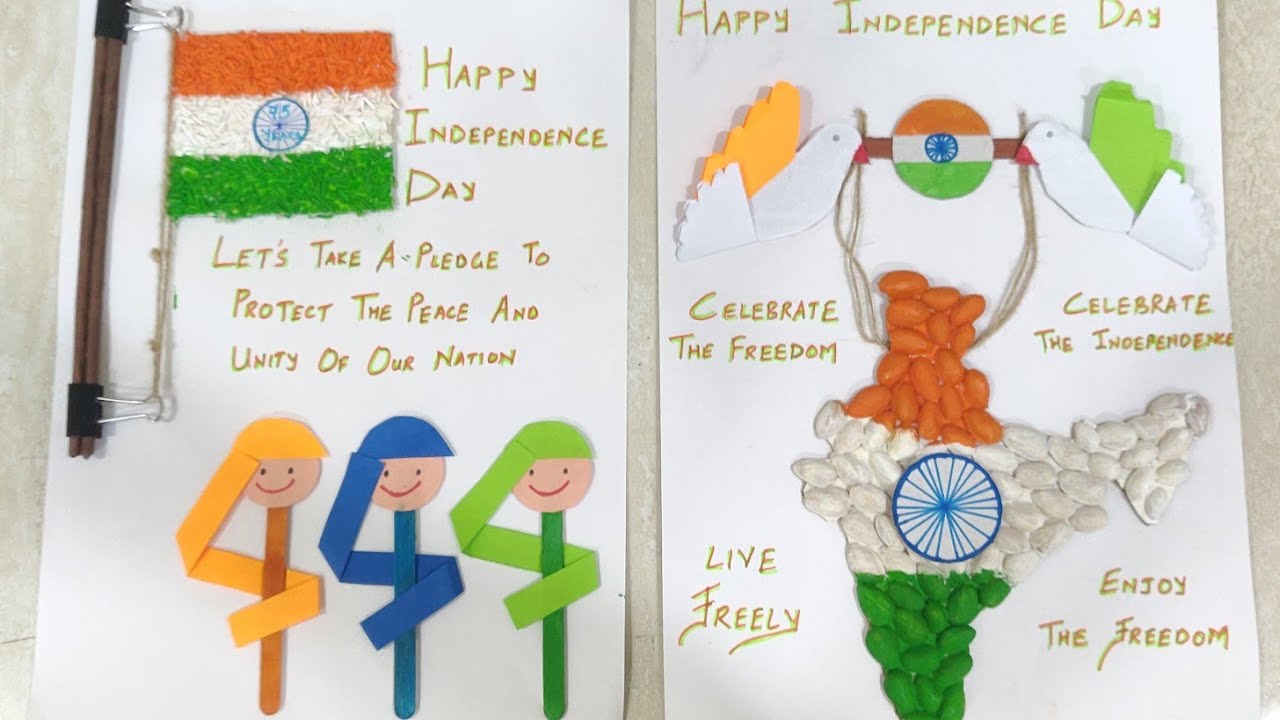 75
YEARS
HAPPY
INDEPENDENCE
DAY
LET'S TAKE A PLEDGE TO
PROTECT THE PEACE AND
UNITY OF OUR NATION
HAPPY INDEPENDENCE DAY
CELEBRATE
THE FREEDOM
CELEBRATE
THE INDEPENDENCE
LIVE
FREELY
ENJOY
THE FREEDOM